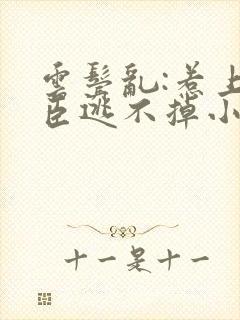 雲鬢亂:惹上
臣逃不掉小
十一是十一